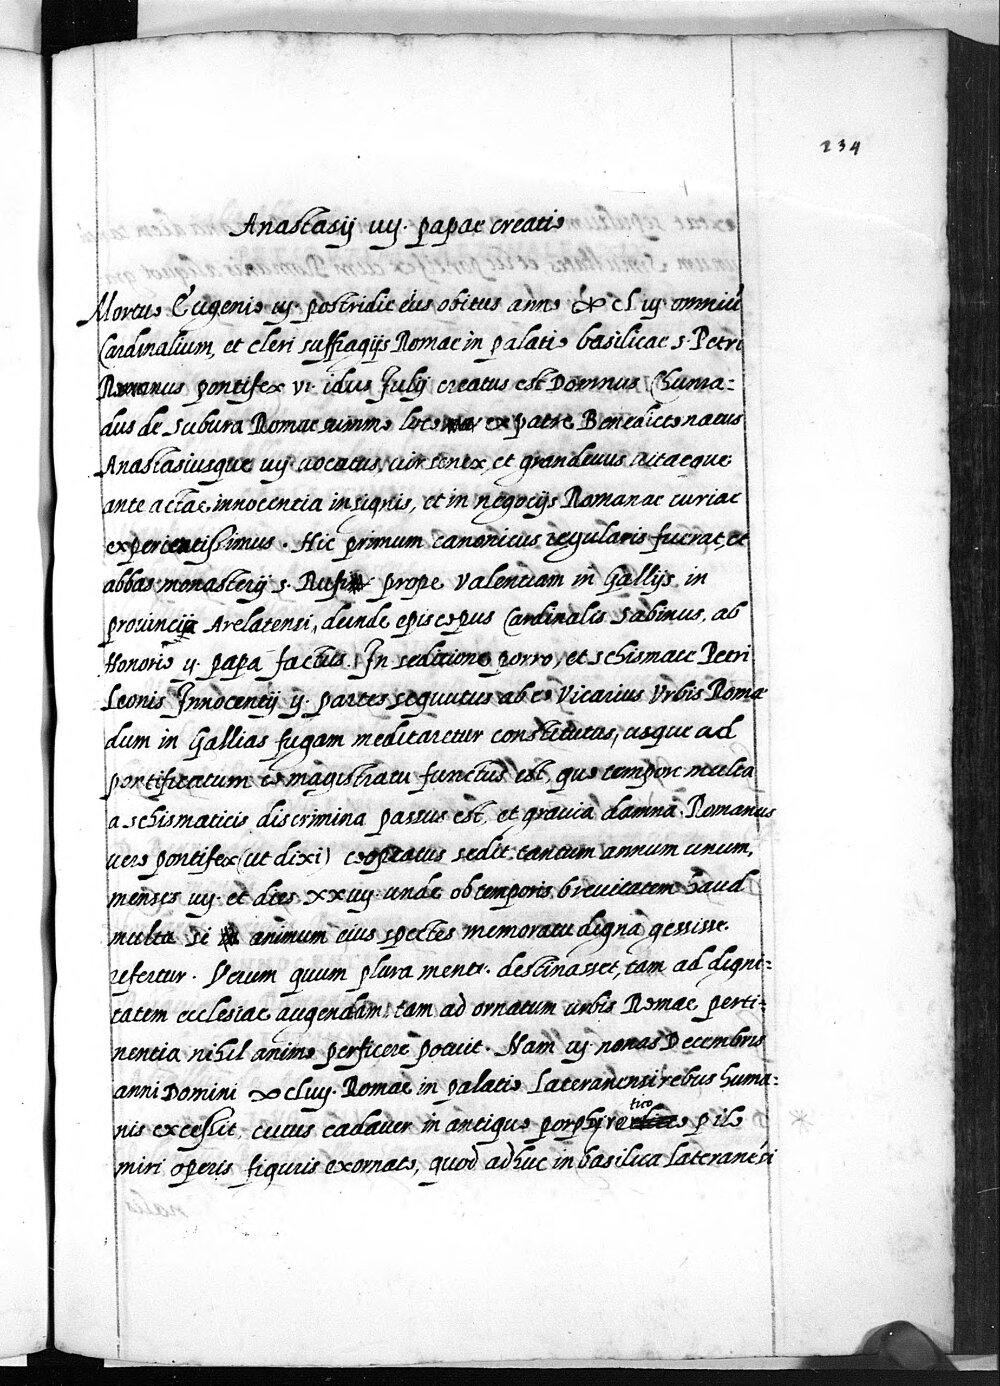 234
Anastasij iiij. papae creatio
Mortuo Eugenio iij. postridie eius obitus anno ∞ CLiij omniū
Cardinalium, et cleri suffragijs Romae in palatio basilicae s. Petri
Romanus pontifex vi. idus Julij creatus est Domnus Chunra-
dus de Subura Romae summo loco ex patre Benedicto natus
Anastasiusque iiij. vocatus, vir senex, et grandevus vitaeque
ante actae innocentia insignis, et in negocijs Romanae curiae
experientissimus. Hic primum canonicus regularis fuerat, et
abbas monasterij s. Rufi prope Valentiam in Gallijs in
provincia Arelatensi, deinde episcopus Cardinalis Sabinus, ab
Honorio ij. papa factus. In seditione porro, et schismate Petri
Leonis Innocentij ij. partes sequutus ab eo Vicarius Urbis Romae
dum in Gallias fugam meditaretur constitutus, usque ad
pontificatum eo magistratu functus est, quo tempore multa
a schismaticis discrimina passus est, et gravia damna. Romanus
vero pontifex (ut dixi) cooptatus sedit tantum annum unum,
menses iiij. et dies xxiiij. unde ob temporis brevitatem haud
multa si animum eius spectes memoratu digna gessisse
refertur. Verum quum plura mente destinasset, tam ad digni-
tatem ecclesiae augendam tam ad ornatum urbis Romae perti-
nentia nihil animo perficere potuit. Nam iij nonas Decembris
anni Domini ∞ CLiiij. Romae in palatio Lateranensi rebus huma-
nis excessit, cuius cadaver in antiquo porphyretico pilo
miri operis figuris exornato, quod adhuc in basilica Lateranēsi